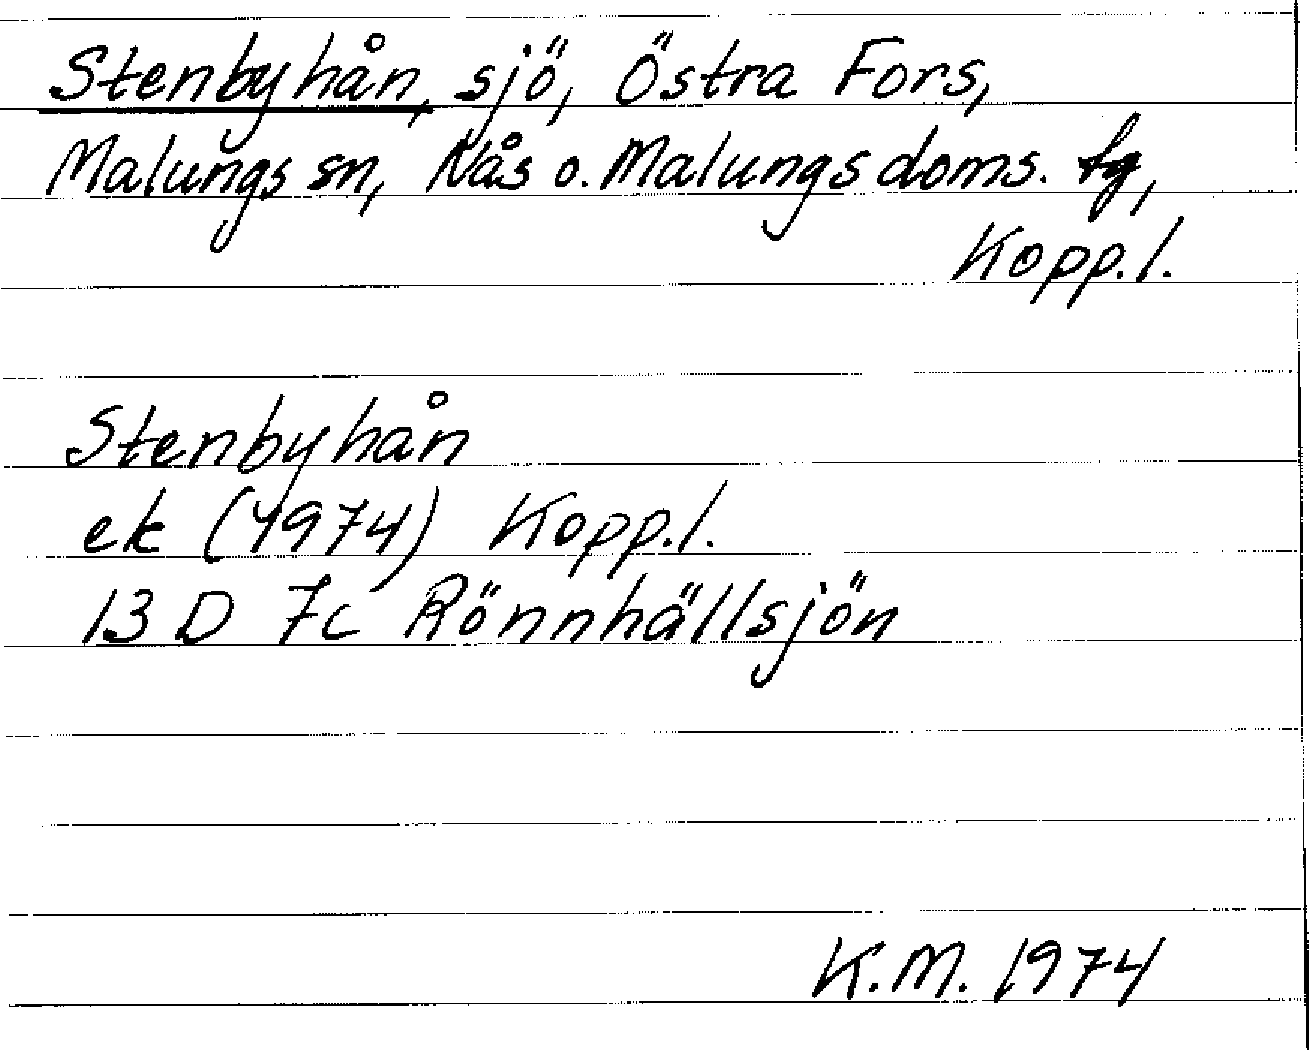 Stenbyhån, sjö, Östra Fors,
Malungs sn, Nås o. Malungs doms. tg,
Kopp.l.
Stenbyhån
ek (1974) Kopp.l.
13 D 7c Rönnhällsjön
K.M. 1974